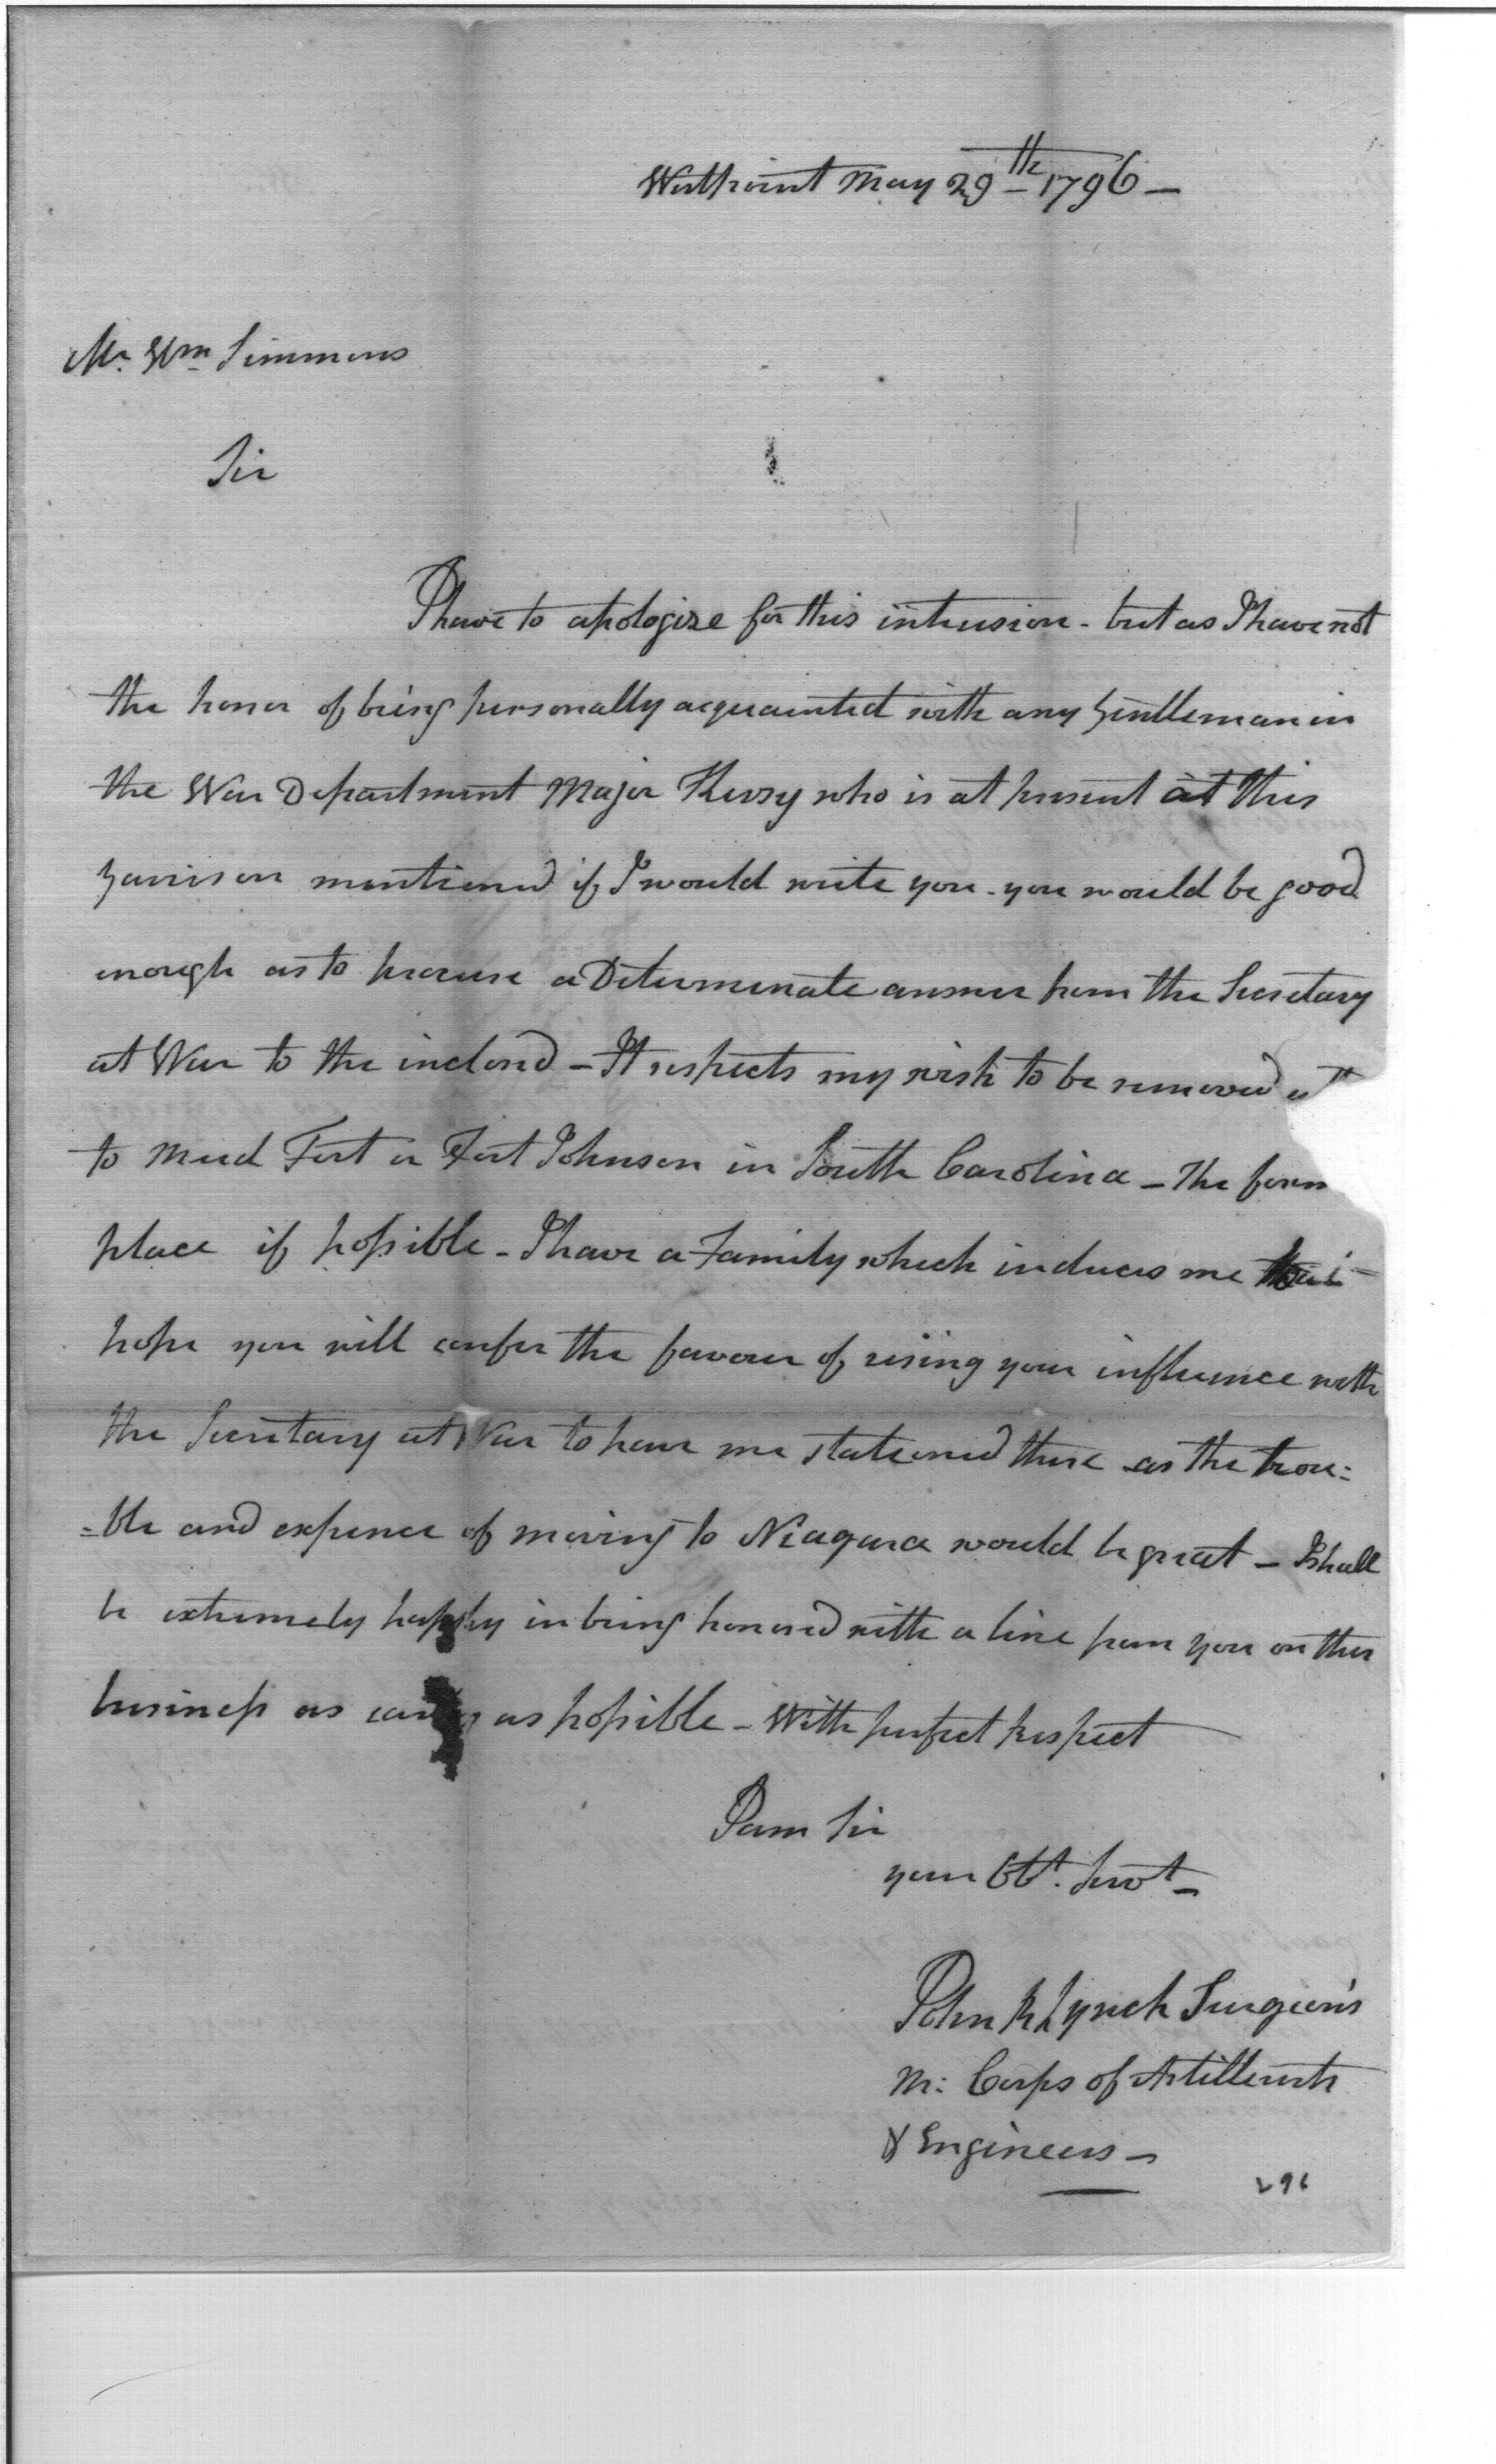 Westpoint May 29th 1796 —
Mr. Wm Simmons
Sir
I have to apologize for this intrusion - but as I have not
the honor of being personally acquainted with any Gentleman in
the War Department Major Kersy who is at present at this
Garrison mentioned if I would write you - you would be good
enough as to procure a Determinate answer from the Secretary
at War to the inclosed — It respects my wish to be removed
to Mud Fort or Fort Johnson in South Carolina — The form
place if possible - I have a Family which induces me
hope you will confer the favour of using your influence with
the Secretary at War to have me stationed there as the trou:
=ble and expence of moving to Niagara would be great — I shall
be extremely happy in being honored with a line from you on this
business as early as possible — With perfect Respect
I am Sir
your Obt. Servt —
John R Lynch Surgeon's
M: Corps of Artillerists
& Engineers —
296